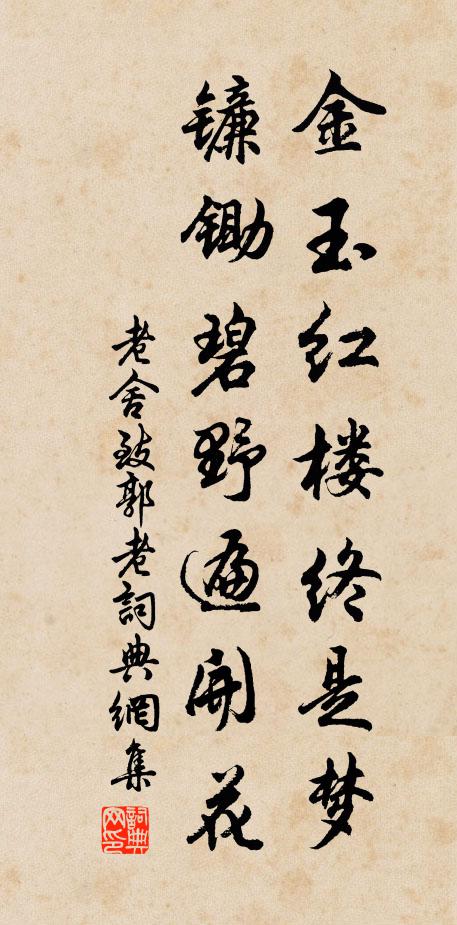 金玉红楼终是梦
镰锄碧野遍开花
老舍致郭老詞典網集
詞典网印